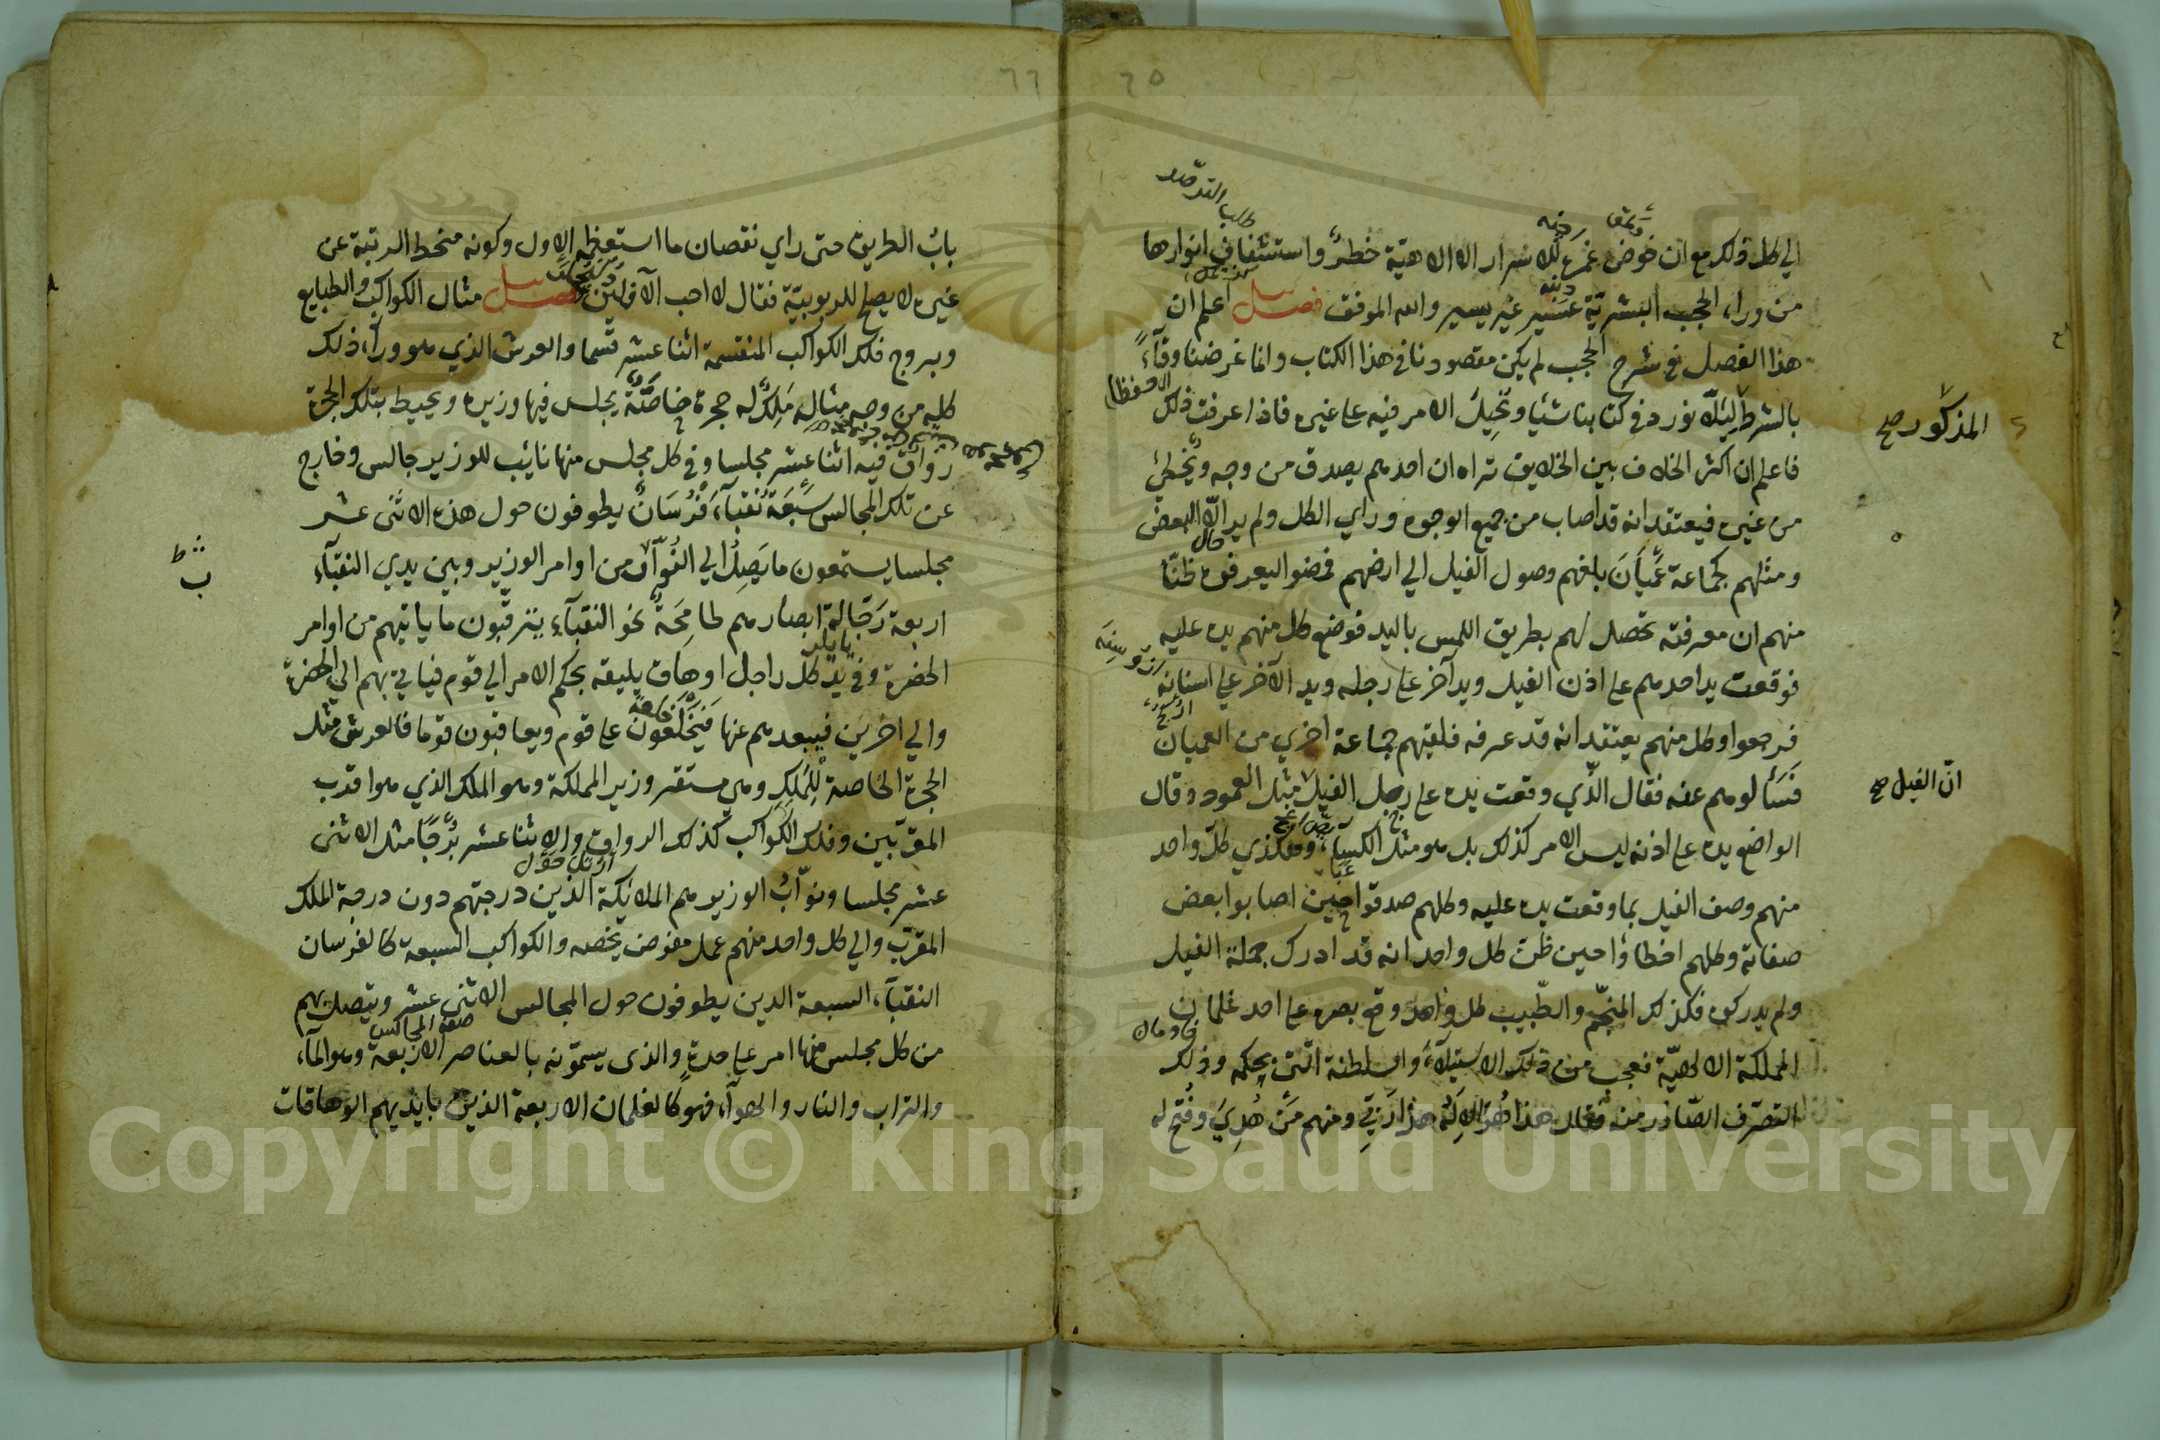 ٦٥
الي كل ذلك مع ان خوض غمرة للاسرار الالاهية خطر واستشفاف انوارها
من وراء الحجب البشرية عسير غير يسير والله الموفق فصل اعلم ان
هذا الفصل في شرح الحجب لم يكن مقصودنا في هذا الكتاب وانما غرضنا وفآءً
بالشرط ليئلّا نورد في كتابنا شئيا ونحيل الامر فيه على غيره فاذا عرفت ذلك
المذكور صح
فاعلم ان اكثر الخلاف بين الخلايق تراه ان احدهم يصدق من وجه ويخطئ
من غيره فيعتقد انه قد اصاب من جميع الوجوه وراي الكل ولم ير الّا البعض
ومثلهم كجماعة عميان بلغهم وصول الفيل الي ارضهم فمضوا ليعرفوه ظنّا
منهم ان معرفته تحصل لهم بطريق اللمس باليد فوضع كل منهم يده عليه
فوقعت يد احدهم على اذن الفيل ويد آخر على رجله ويد الآخر على اسنانه
فرجعوا وكل منهم يعتقد انه قد عرفه فلقيهم جماعة اخري من العميان
فسألوهم عنه فقال الّذي وقعت يده على رجل الفيل مثل العمود وقال
انّ الفيل صح
الواضع يده على اذنه ليس الامر كذلك بل هو مثل الكسآء وهكذي كلّ واحد
منهم وصف الفيل بما وقعت يده عليه وكلهم صدقوا حين اصابوا بعض
صفاته وكلهم اخطاؤا حين ظن كل واحد انه قد ادرك جملة الفيل
ولم يدركوه فكذلك المنجّم والطّبيب كل واحد وقع بصره على احد غلمان
المملكة الالاهيّة فعجب من ذلك الاستيلآء والسلطنة الّتي بحكمه وذلك
التصرّف الصّادر منه فقال هذا هو الاله هذا ربّي ومنهم من هُدِيَ وفُتح له
٦٦
بابُ الطريق حتى راي نقصان ما استعظم الاول وكونه منحط الرتبة عن
غيره لا يصلح للربوبيّة فقال لا احب الآفلين فصل مثال الكواكب والطبايع
وبروج فلك الكواكب المنقسمة اثنا عشر قسما والعرش الذي هو ورآء ذلك
كله من وجه مثاله مَلِكٌ له حجرة خاصّة يجلس فيها وزيره ويحيط بتلك الحجرة
رواق فيه اثنا عشر مجلسا وفي كل مجلس منها نايب للوزير جالس وخارج
عن تلك المجالس سبعة نُقبآء فرسان يطوفون حول هذه الاثنى عشر
مجلسا يستمعون ما يَصِلُ الي النوّاب من اوامر الوزير وبين يدي النقبآء
اربعة رجالة ابصارهم طامحة نحو النقبآء يترقّبون ما ياتيهم من اوامر
الحضرة وفي يد كل راجل اوهاق يليقه بحكم الامر الي قوم فياتي بهم الي الحضرة
والي اخرين فيبعدهم عنها فيخلعون على قوم ويعاقبون قوما فالعرش مثل
الحجرة الخاصة للملك وهي مستقر وزير المملكة وهو الملك الذي هو اقرب
المقرّبين وفلك الكواكب كذلك الرواق والاثنا عشر برجًا مثل الاثنى
عشر مجلسا ونوّابُ الوزير هم الملايكة الذين درجتهم دون درجة الملك
المقرّب والي كل واحد منهم عمل مفوض يخصه والكواكب السبعة كالفرسان
النقبآء السبعة الدين يطوفون حول المجالس الاثني عشر ويتصل بهم
من كل مجلس منها امر على حدة والذى يسمّونه بالعناصر الاربعة وهو المآء
والتراب والنار والهوآء فهو كالغلمان الاربعة الذين بايديهم الوهاقات
Copyright © King Saud University